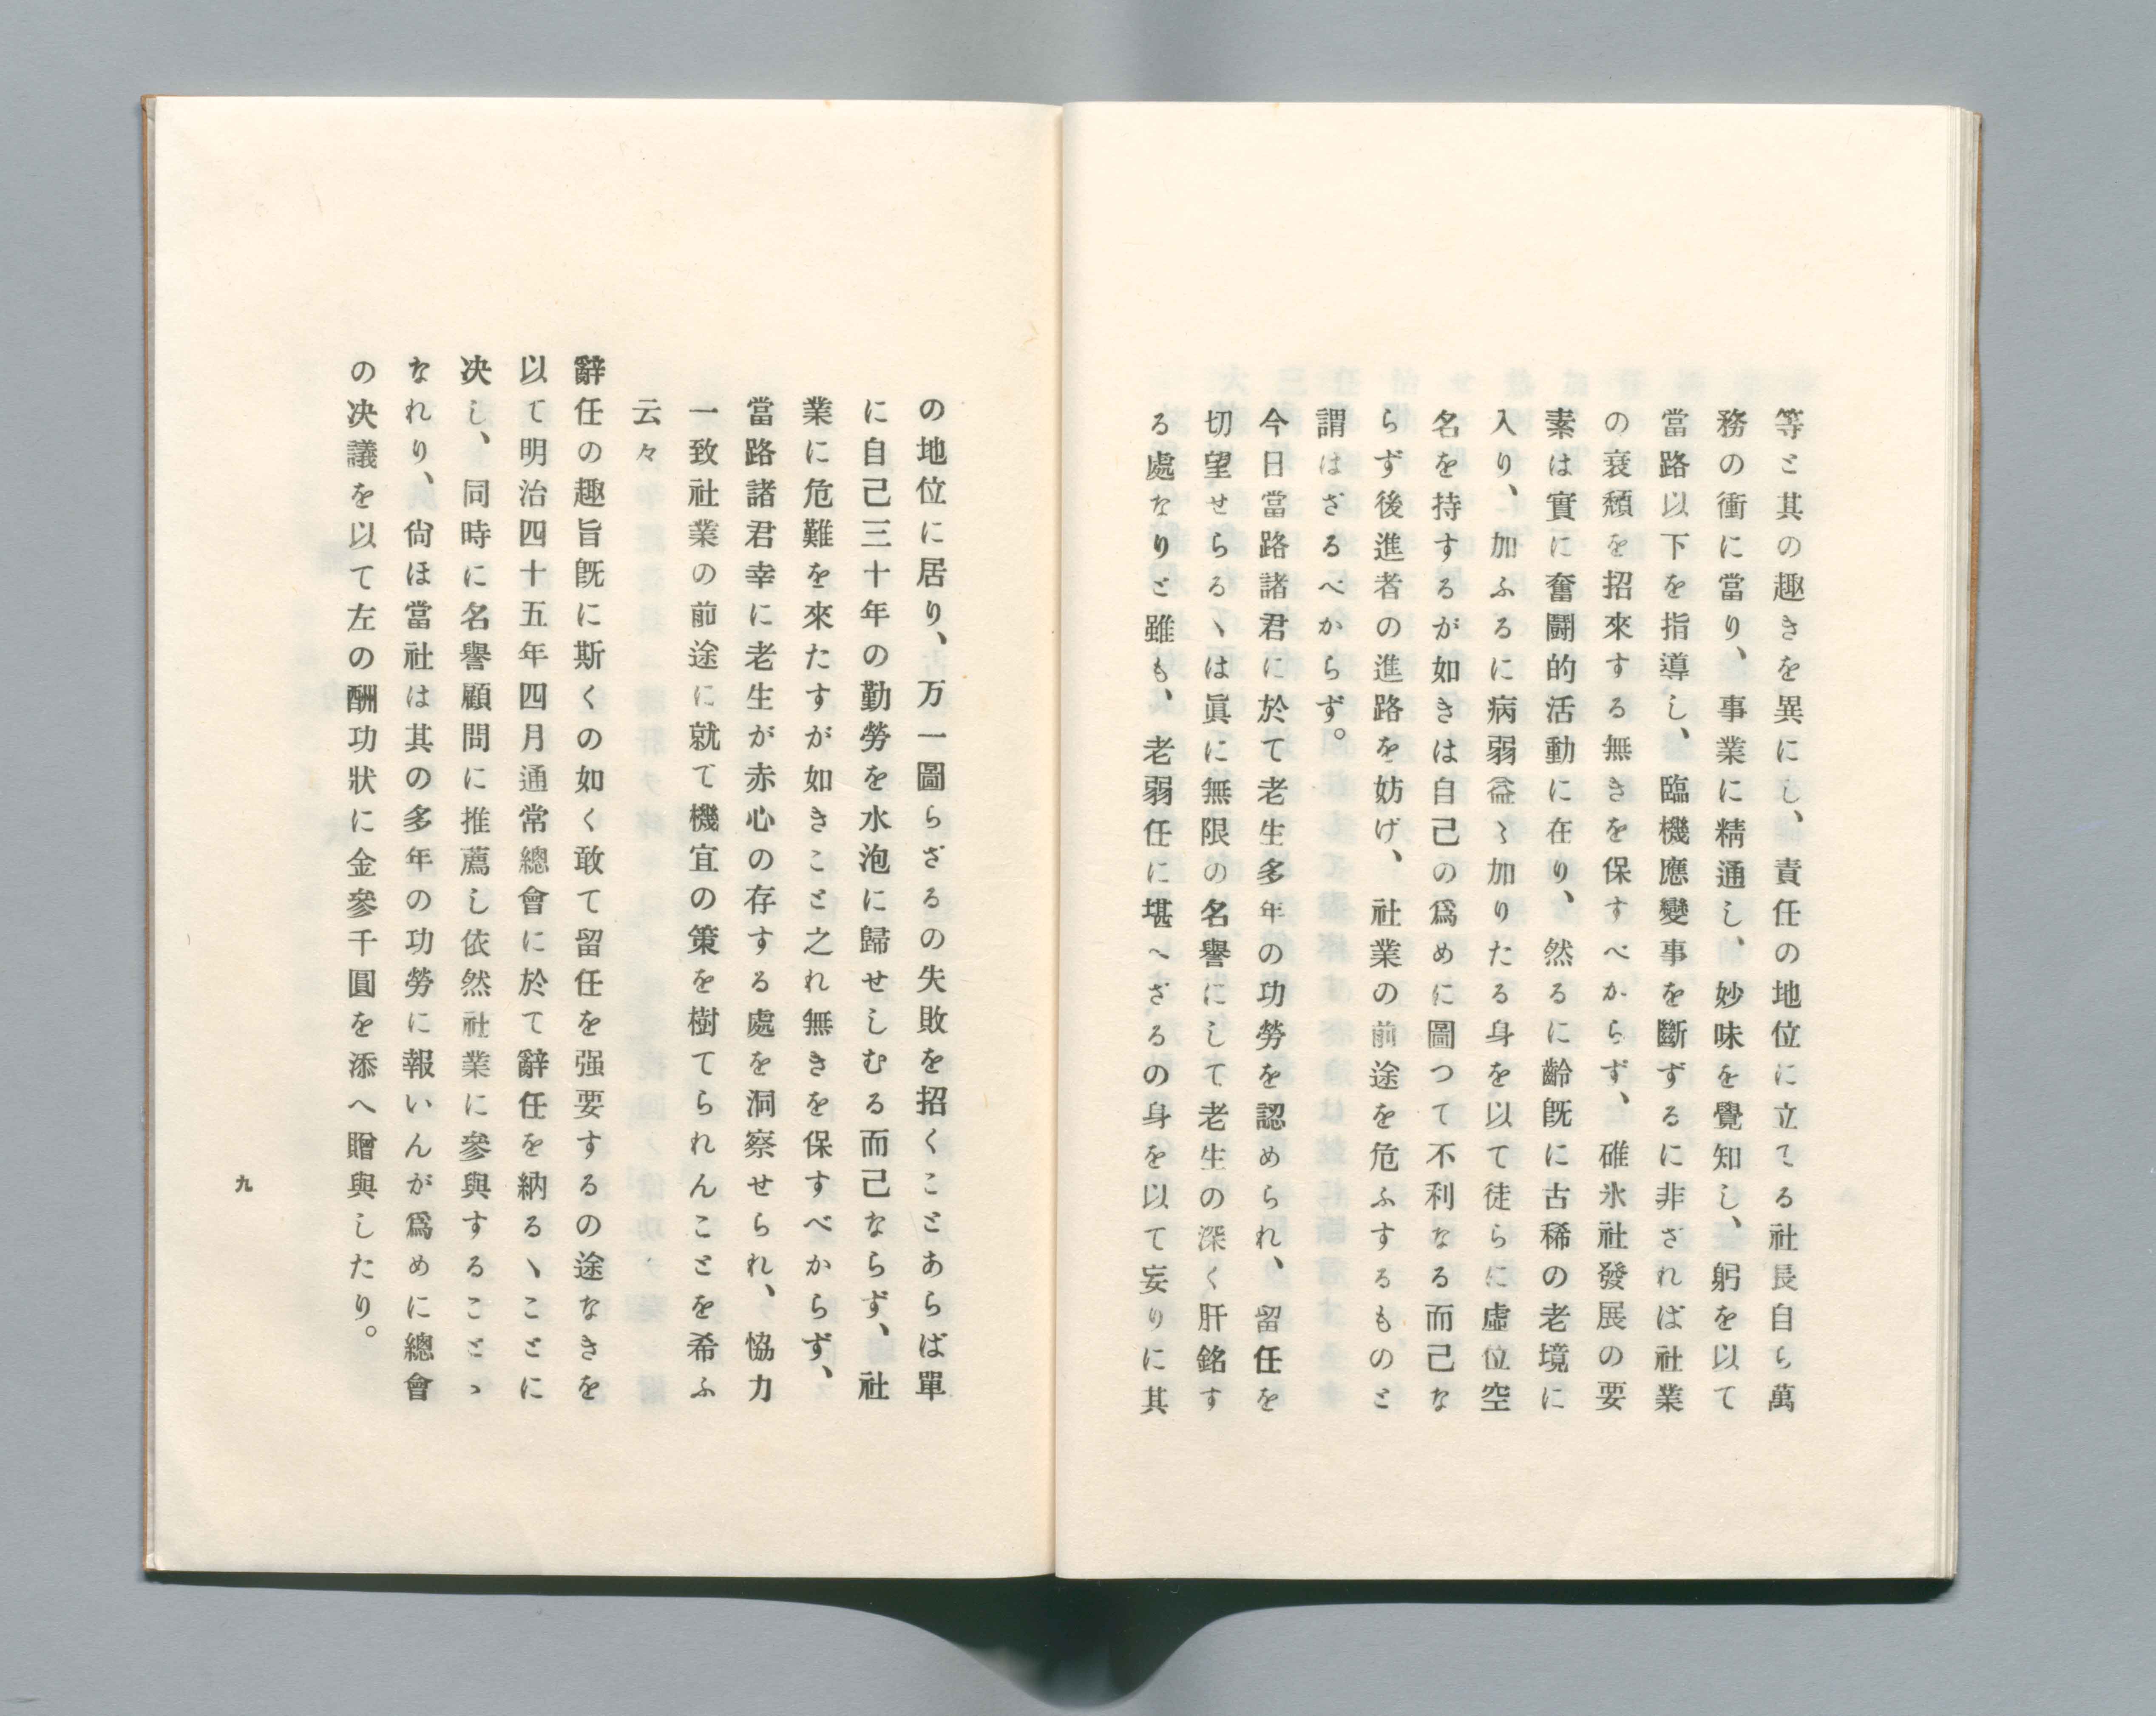 等と其の趣きを異にし、責任の地位に立てる社長自ら萬
務の衝に當り、事業に精通し、妙味を覺知し、躬を以て
當路以下を指導し、臨機應變事を斷ずるに非ざれば社業
の衰頽を招來する無きを保すべからず、碓氷社發展の要
素は實に奮鬪的活動に在り、然るに齡旣に古稀の老境に
入り、加ふるに病弱益〻加りたる身を以て徒らに虛位空
名を持するが如きは自己の爲めに圖つて不利なる而己な
らず後進者の進路を妨げ、社業の前途を危ふするものと
謂はざるべからず。
今日當路諸君に於て老生多年の功勞を認められ、留任を
切望せらるゝは眞に無限の名譽にして老生の深く肝銘す
る處なりと雖も、老弱任に堪へざるの身を以て妄りに其
の地位に居り、万一圖らざるの失敗を招くことあらば單
に自己三十年の勤勞を水泡に歸せしむる而己ならず、社
業に危難を來たすが如きこと之れ無きを保すべからず、
當路諸君幸に老生が赤心の存する處を洞察せられ、恊力
一致社業の前途に就て機宜の策を樹てられんことを希ふ
云々
辭任の趣旨旣に斯くの如く敢て留任を强要するの途なきを
以て明治四十五年四月通常總會に於て辭任を納るゝことに
決し、同時に名譽顧問に推薦し依然社業に參與することゝ
なれり、尙ほ當社は其の多年の功勞に報いんが爲めに總會
の決議を以て左の酬功狀に金參千圓を添へ贈與したり。
九